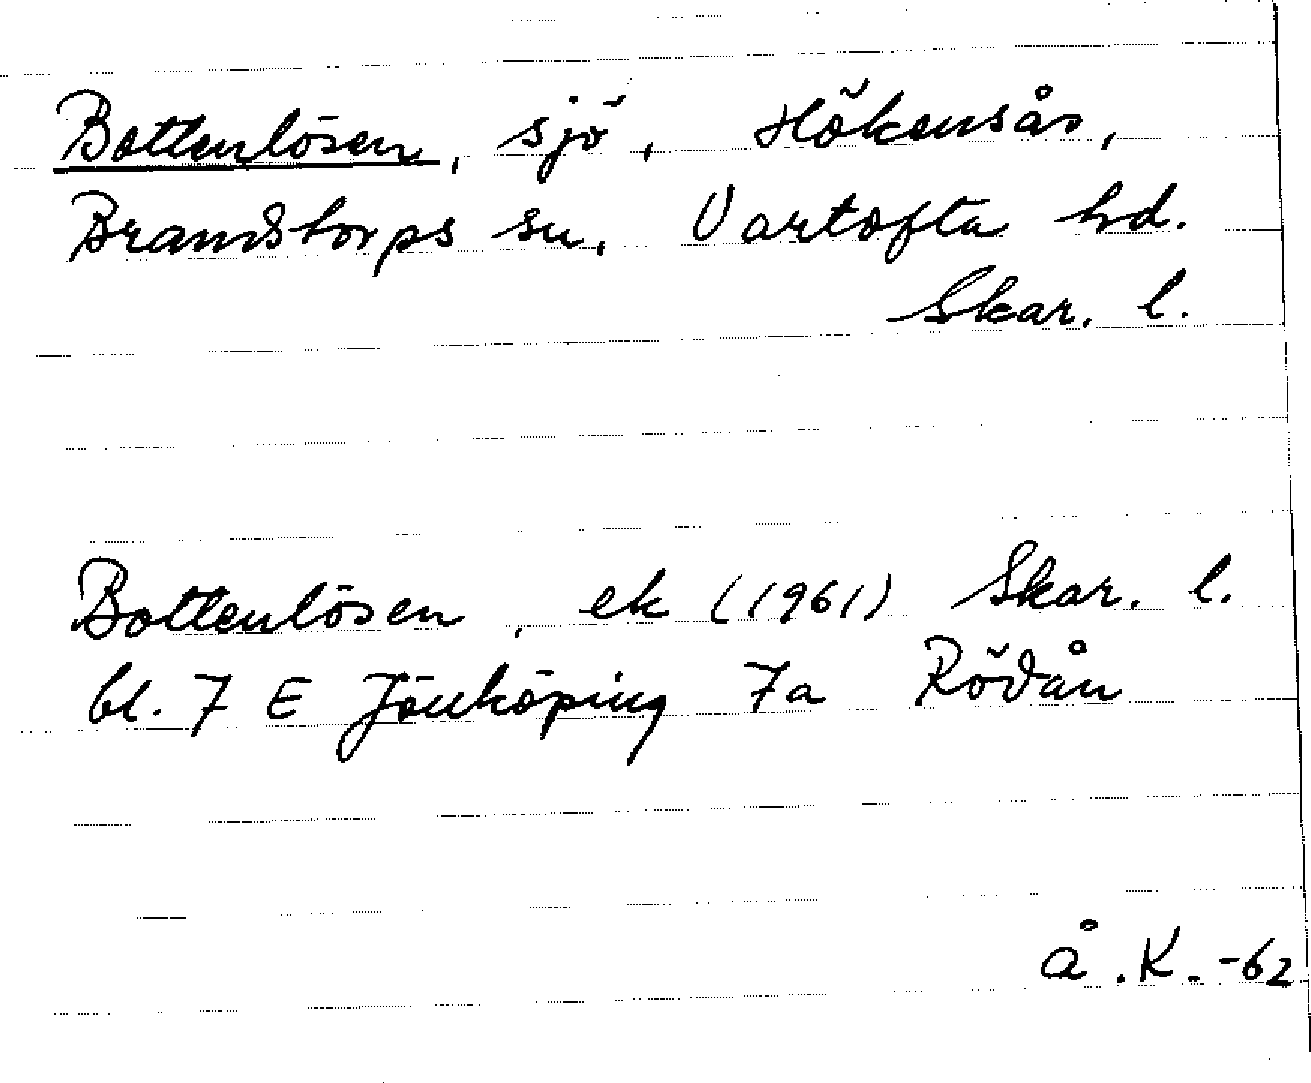 Bottenlösen, sjö, Hökensås,
Brandstorps sn, Vartofta hd.
Skar. l.
Bottenlösen, ek (1961) Skar. l.
bl. 7 E Jönköping 7a Rödån
Å.K.-62